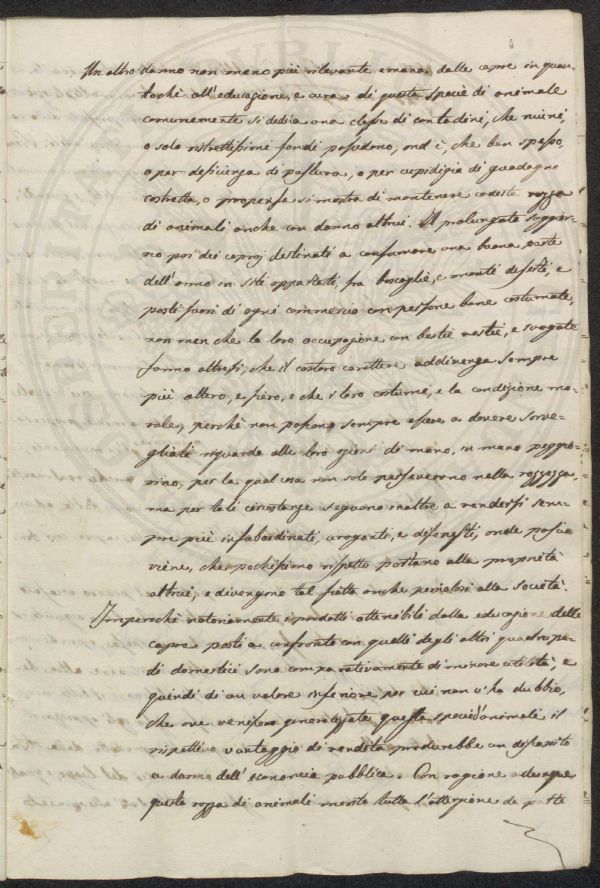 Un altro danno non meno più rilevante emana dalle capre in quan-
tochè all'educazione, e cura di queste specie di animale
comunemente si dedica una classe di contadini, che niuni,
o solo ristrettissimi fondi possedono, ond'è, che ben spesso
o per deficienza di pastura, o per cupidigia di guadagno
costretta, o propensa si mostra di mantenere codesta razza
di animali anche con danno altrui. Il prolungato soggior-
no poi dei caproj destinati a consumare una buona parte
dell'anno in siti appartati, fra boscaglie, e monti deserti, e
posti fuori di ogni commercio con persone bene costumate,
non men che la loro occupazione con bestie restie, e svogate
fanno altresì, che il costoro carattere addivenga sempre
più altero, e fiero, e che i loro costumi, e la condizione mo-
rale, perchè non possono sempre essere a dovere sorve-
gliati riguardo alle loro azioni di mano, in mano peggio-
rino, per la qual cosa non solo perseverono nella rozzezza
ma per tali circostanze seguono inoltre a rendersi sem-
pre più insubordinati, aroganti, e disonesti, onde poscia
viene, che pochissimo rispetto portano alla proprietà
altrui, e divengono tal fiatta anche pericolosi alla Società.
Imperochè notoriamente i prodotti ottenibili dalla educazione delle
capre posti a confronto con quelli degli altri quadrupe-
di domestici sono comparativamente di minore utilità, e
quindi di un valore inferiore per cui non v'ha dubbio,
che ove venissero generalizzate queste specie d'animali il
rispettivo vantaggio di rendita produrebbe un discapito
a danno dell'economia pubblica. Con ragione adunque
questa razza di animali merita tutta l'attenzione da parte